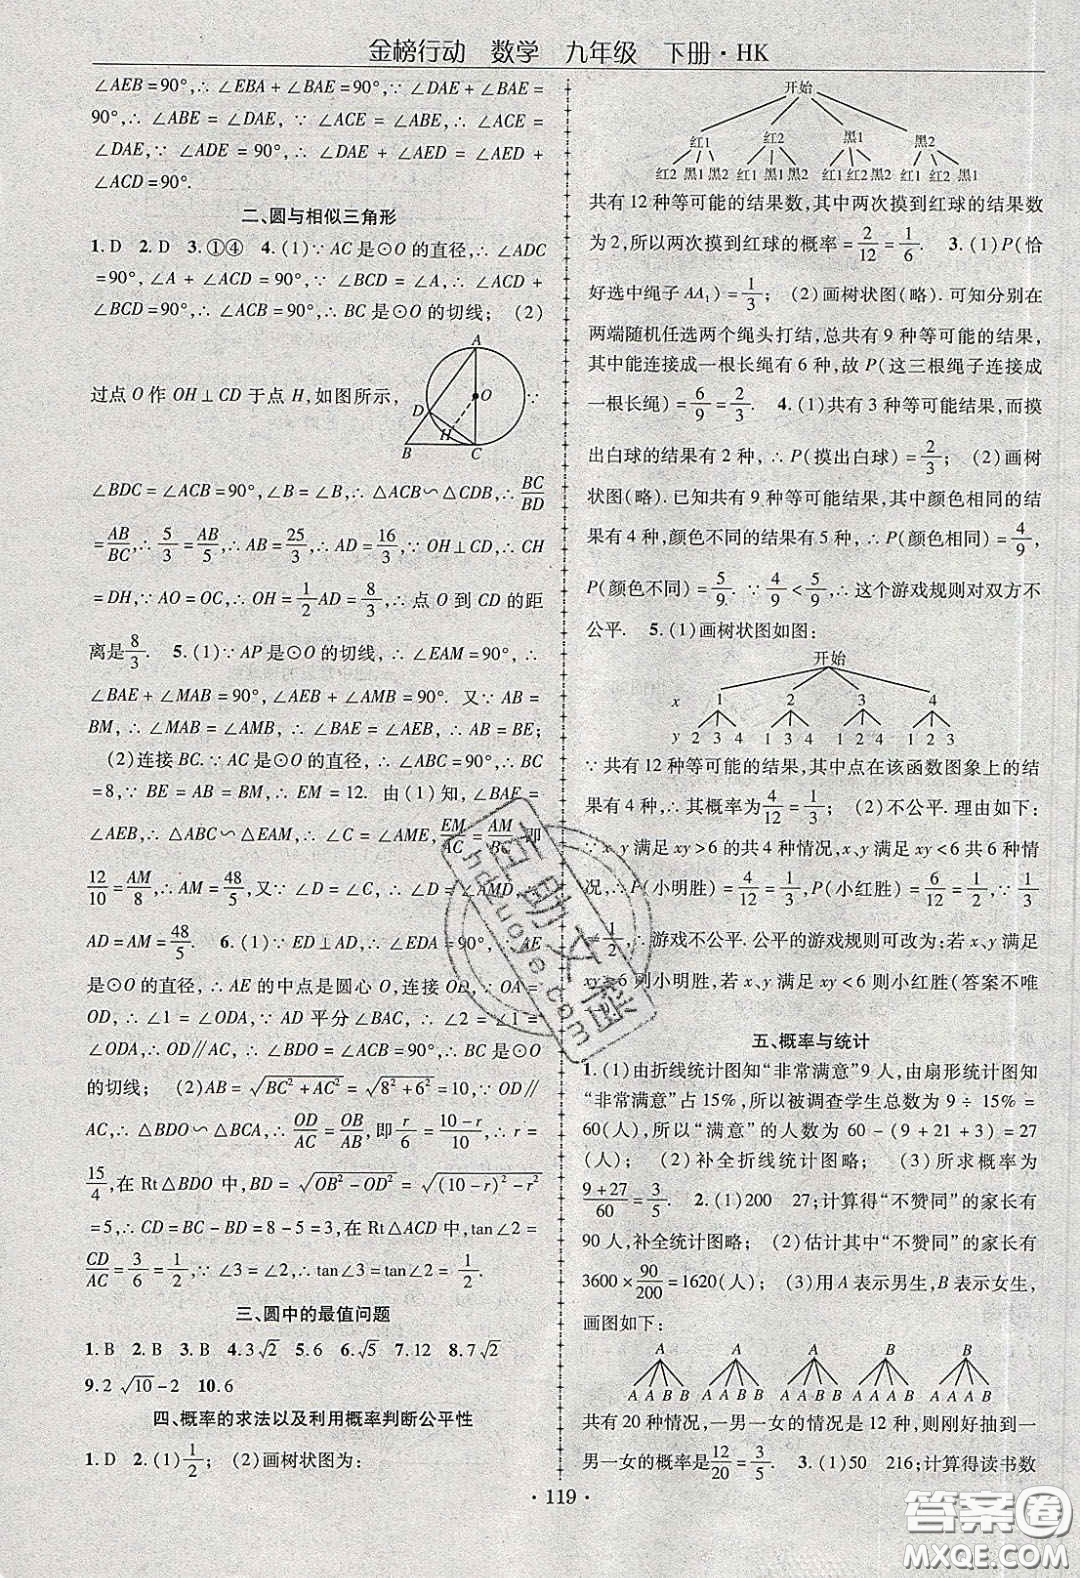 金榜行动 数学 九年级 下册·HK
∠AEB=90°,∴∠EBA+∠BAE=90°,∴∠DAE+∠BAE=
90°,∴∠ABE=∠DAE,∵∠ACE=∠ABE,∴∠ACE=
∠DAE,∵∠ADE=90°,∴∠DAE+∠AED=∠AED+
∠ACD=90°.
二、圆与相似三角形
1.D 2.D 3.①④ 4.(1)∵AC是⊙O的直径,∴∠ADC
=90°,∴∠A+∠ACD=90°,∵∠BCD=∠A,∴∠BCD+
∠ACD=90°,∴∠ACB=90°,∴BC是⊙O的切线；(2)
过点O作OH⊥CD于点H,如图所示,
∵
A
O
D
H
B
C
∠BDC=∠ACB=90°,∠B=∠B,∴△ACB∽△CDB,∴BC/BD
=AB/BC,∴5/3=AB/5,∴AB=25/3,∴AD=16/3,∵OH⊥CD,∴CH
=DH,∵AO=OC,∴OH=1/2AD=8/3,∴点O到CD的距
离是8/3. 5.(1)∵AP是⊙O的切线,∴∠EAM=90°,∴
∠BAE+∠MAB=90°,∠AEB+∠AMB=90°. 又∵AB=
BM,∴∠MAB=∠AMB,∴∠BAE=∠AEB,∴AB=BE；
(2)连接BC.∵AC是⊙O的直径,∴∠ABC=90°,∵BC
=8,∵BE=AB=BM,∴EM=12. 由(1)知,∠BAE=
∠AEB,∴△ABC∽△EAM,∴∠C=∠AME,EM/AC=AM/BC,即
12/10=AM/8,∴AM=48/5,又∵∠D=∠C,∴∠D=∠AMD,∴
AD=AM=48/5. 6.(1)∵ED⊥AD,∴∠EDA=90°,∵AE
是⊙O的直径,∴AE的中点是圆心O,连接OD,∵OA=
OD,∴∠1=∠ODA,∵AD平分∠BAC,∴∠1=∠2=
∠ODA,∴OD∥AC,∴∠BDO=∠ACB=90°,∴BC是⊙O
的切线； (2)AB=√(BC²+AC²)=√(8²+6²)=10,∵OD∥
AC,∴△BDO∽△BCA,∴OD/AC=OB/AB,即r/6=(10-r)/10,∴r=
15/4,在Rt△BDO中,BD=√(OB²-OD²)=√((10-r)²-r²)
=5,∴CD=BC-BD=8-5=3,在Rt△ACD中,tan∠2=
CD/AC=3/6=1/2,∵∠3=∠2,∴tan∠3=tan∠2=1/2.
三、圆中的最值问题
1.B 2.B 3.B 4.3√2 5.6 6.√5 7.12 8.7√2
9.2√10-2 10.6
四、概率的求法以及利用概率判断公平性
1.D 2.(1)1/2；(2)画树状图为：
开始
红1 红2 黑1 黑2
红2 黑1 黑2 红1 黑1 黑2 红1 红2 黑2 红1 红2 黑1
共有12种等可能的结果数,其中两次摸到红球的结果数
为2,所以两次摸到红球的概率=2/12=1/6. 3.(1)P(恰
好选中绳子AA₁)=1/3；(2)画树状图(略).可知分别在
两端随机任选两个绳头打结,总共有9种等可能的结果,
其中能连接成一根长绳有6种,故P(这三根绳子连接成
一根长绳)=6/9=2/3. 4.(1)共有3种等可能结果,而摸
出白球的结果有2种,∴P(摸出白球)=2/3；(2)画树
状图(略).已知共有9种等可能结果,其中颜色相同的结
果有4种,颜色不同的结果有5种,∴P(颜色相同)=4/9,
P(颜色不同)=5/9. ∵4/9<5/9,∴这个游戏规则对双方不
公平. 5.(1)画树状图如图：
开始
x 1 2 3 4
y 2 3 4 1 3 4 1 2 4 1 2 3
∵共有12种等可能的结果,其中点在该函数图象上的结
果有4种,∴其概率为4/12=1/3；(2)不公平.理由如下：
∵x、y满足xy>6的共4种情况,x、y满足xy<6共6种情
况,∴P(小明胜)=4/12=1/3,P(小红胜)=6/12=1/2,∵1/3
≠1/2,∴游戏不公平.公平的游戏规则可改为；若x、y满足
xy>6则小明胜,若x、y满足xy<6则小红胜(答案不唯
五、概率与统计
1.(1)由折线统计图知“非常满意”9人,由扇形统计图知
“非常满意”占15%,所以被调查学生总数为9÷15%=
60(人),所以“满意”的人数为60-(9+21+3)=27
(人)；(2)补全折线统计图略；(3)所求概率为
(9+27)/60=3/5. 2.(1)200 27；计算得“不赞同”的家长有
90人,补全统计图略；(2)估计其中“不赞同”的家长有
3600×90/200=1620(人)；(3)用A表示男生,B表示女生,
画图如下：
A A A B B
A A B B A A B B A A B B A A A B A A A B
共有20种情况,一男一女的情况是12种,则刚好抽到一
男一女的概率是12/20=3/5. 3.(1)50 216；计算得读书数
·119·
作业帮文库
答案圈
MXQE.COM